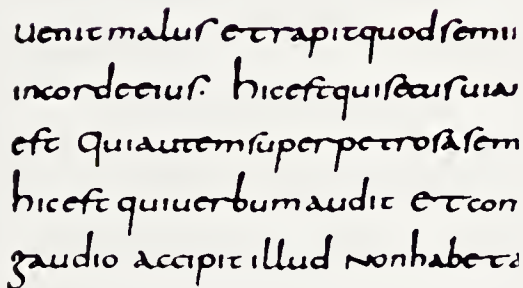 uenit malus et rapit quod semi
in corde eius. hic est qui secus uia
est Qui autem super petrosa sem
hic est qui uerbum audit et con
gaudio accipit illud Non habet a